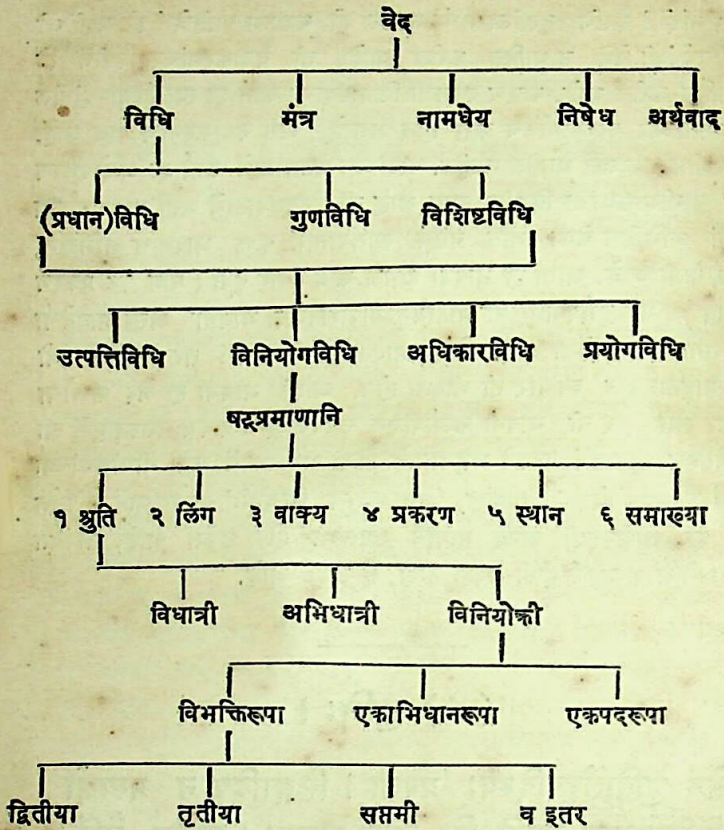 वेद
विधि मंत्र नामधेय निषेध अर्थवाद
(प्रधान)विधि गुणविधि विशिष्टविधि
उत्पत्तिविधि विनियोगविधि अधिकारविधि प्रयोगविधि
षट्प्रमाणानि
१ श्रुति २ लिंग ३ वाक्य ४ प्रकरण ५ स्थान ६ समाख्या
विधात्री अभिधात्री विनियोक्त्री
विभक्तिरूपा एकाभिधानरूपा एकपदरूपा
द्वितीया तृतीया सप्तमी व इतर